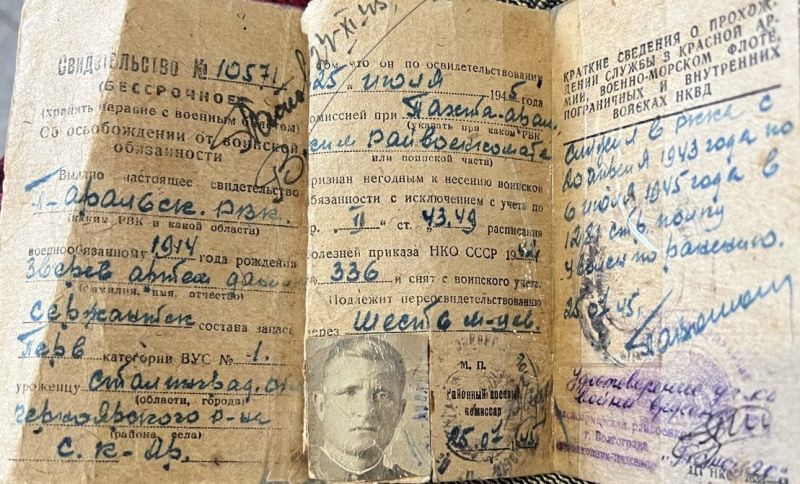 Свидетельство № 10571
(БЕССРОЧНОЕ)
(хранить наравне с военным билетом)
Об освобождении от воинской
обязанности
Выдано настоящее свидетельство
П-Аральск. РВК.
(каким РВК и какой области)
военнообязанному 1914 года рождения
Зверев Артем
(фамилия, имя, отчество)
сержантск состава запаса
Перв категории ВУС № 1.
уроженцу Сталинград. обл
(области, города)
Черноярского р-на
(района, села)
С. К-Яр.
24-XI-45
том что он по освидетельствовании
"25" июля 1945 года
комиссией при Пахта-Арал
(указать при каком РВК
ском райвоенкомата
или воинской части)
признан негодным к несению воинской
обязанности с исключением с учета по
гр. II ст. 43.49 расписания
болезней приказа НКО СССР 1942
336 и снят с воинского учета.
Подлежит переосвидетельствованию
через Шесть м-цев.
М. П.
Районный военный
комиссар
25.07
КРАТКИЕ СВЕДЕНИЯ О ПРОХОЖ-
ДЕНИИ СЛУЖБЫ В КРАСНОЙ АР-
МИИ, ВОЕННО-МОРСКОМ ФЛОТЕ,
ПОГРАНИЧНЫХ И ВНУТРЕННИХ
ВОЙСКАХ НКВД
Служил в РККА с
20 апреля 1943 года по
6 июля 1945 года в
1281 стр полку
Уволен по ранению.
25.07.45.
Удостоверение
войны выдано
г. Волгограда